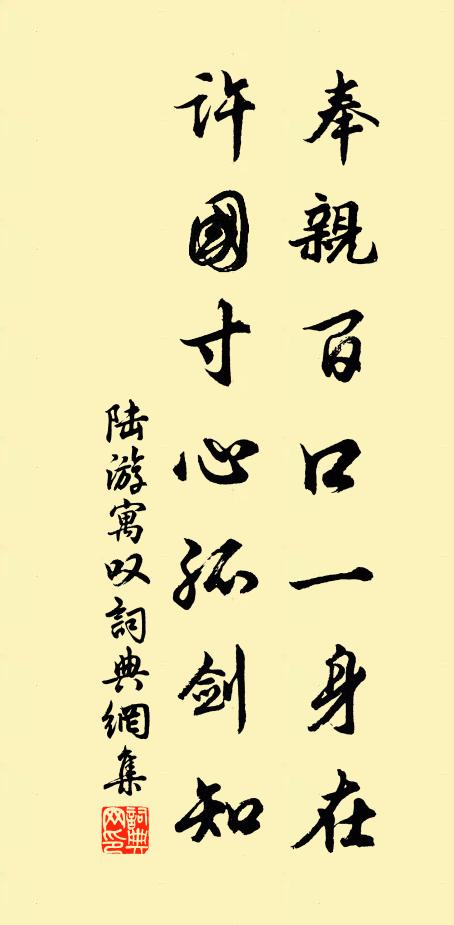 奉親百口一身在
許國寸心孤劍知
陸游寓叹詞典網集
詞典网印